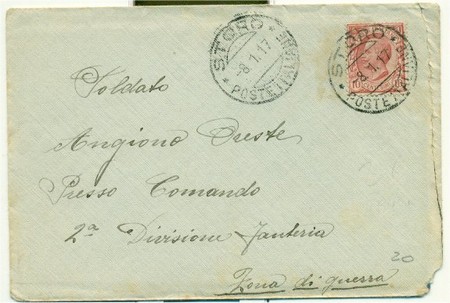 STORO
-8.1.17
POSTE ITALIANE
STORO
-8.1.17
POSTE ITALIANE
10
Soldato
Angiono Oreste
Presso Comando
2ª Divisione Fanteria
Zona di guerra
20